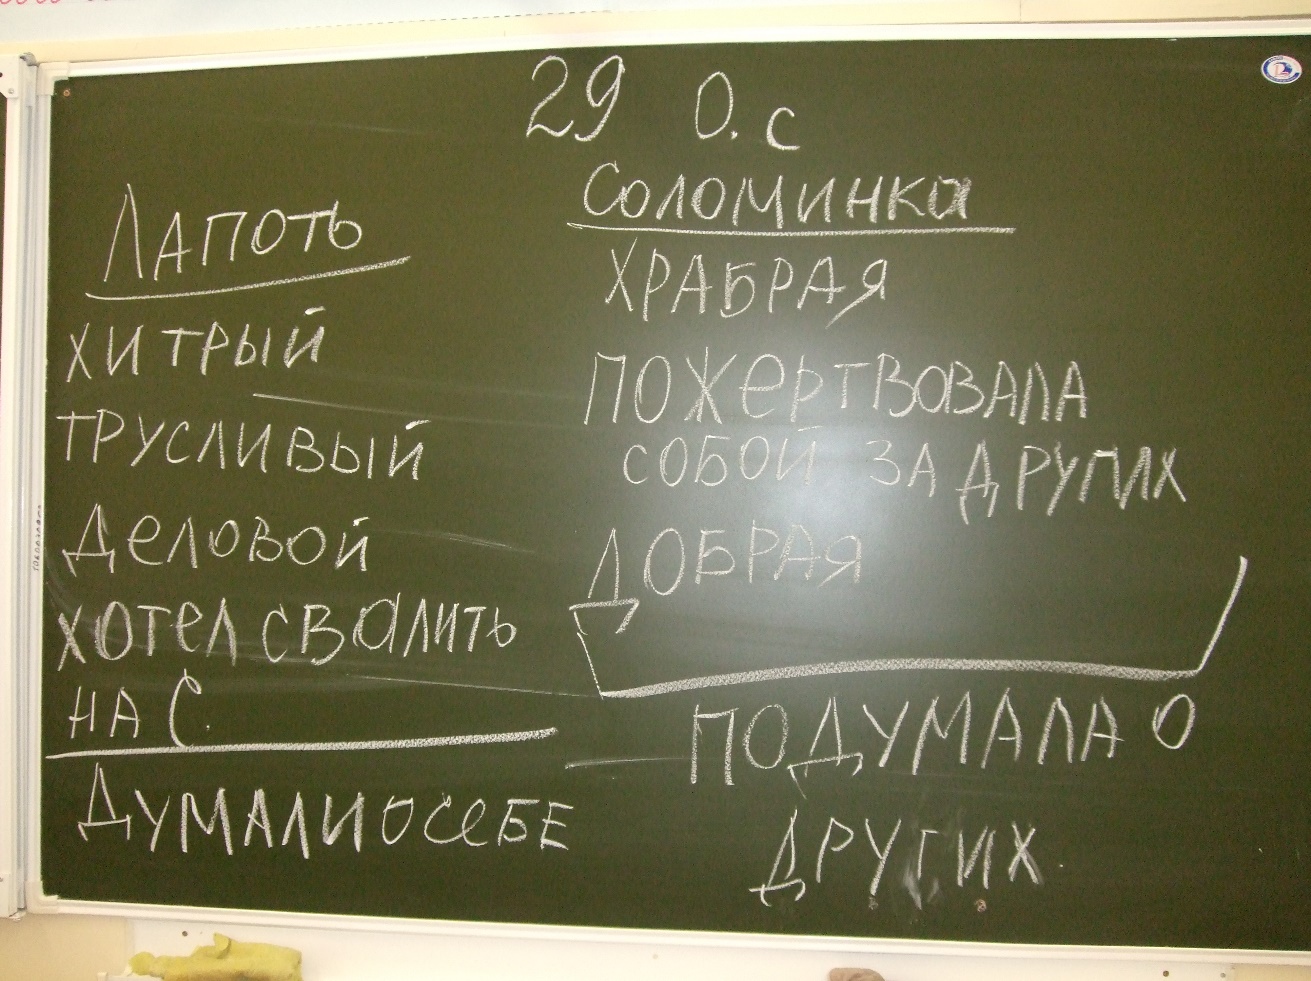 29 О. с
Лапоть
хитрый
трусливый
деловой
хотел свалить
на С.
Думали о себе
Соломинка
храбрая
пожертвовала
собой за других
добрая
подумала о
других.